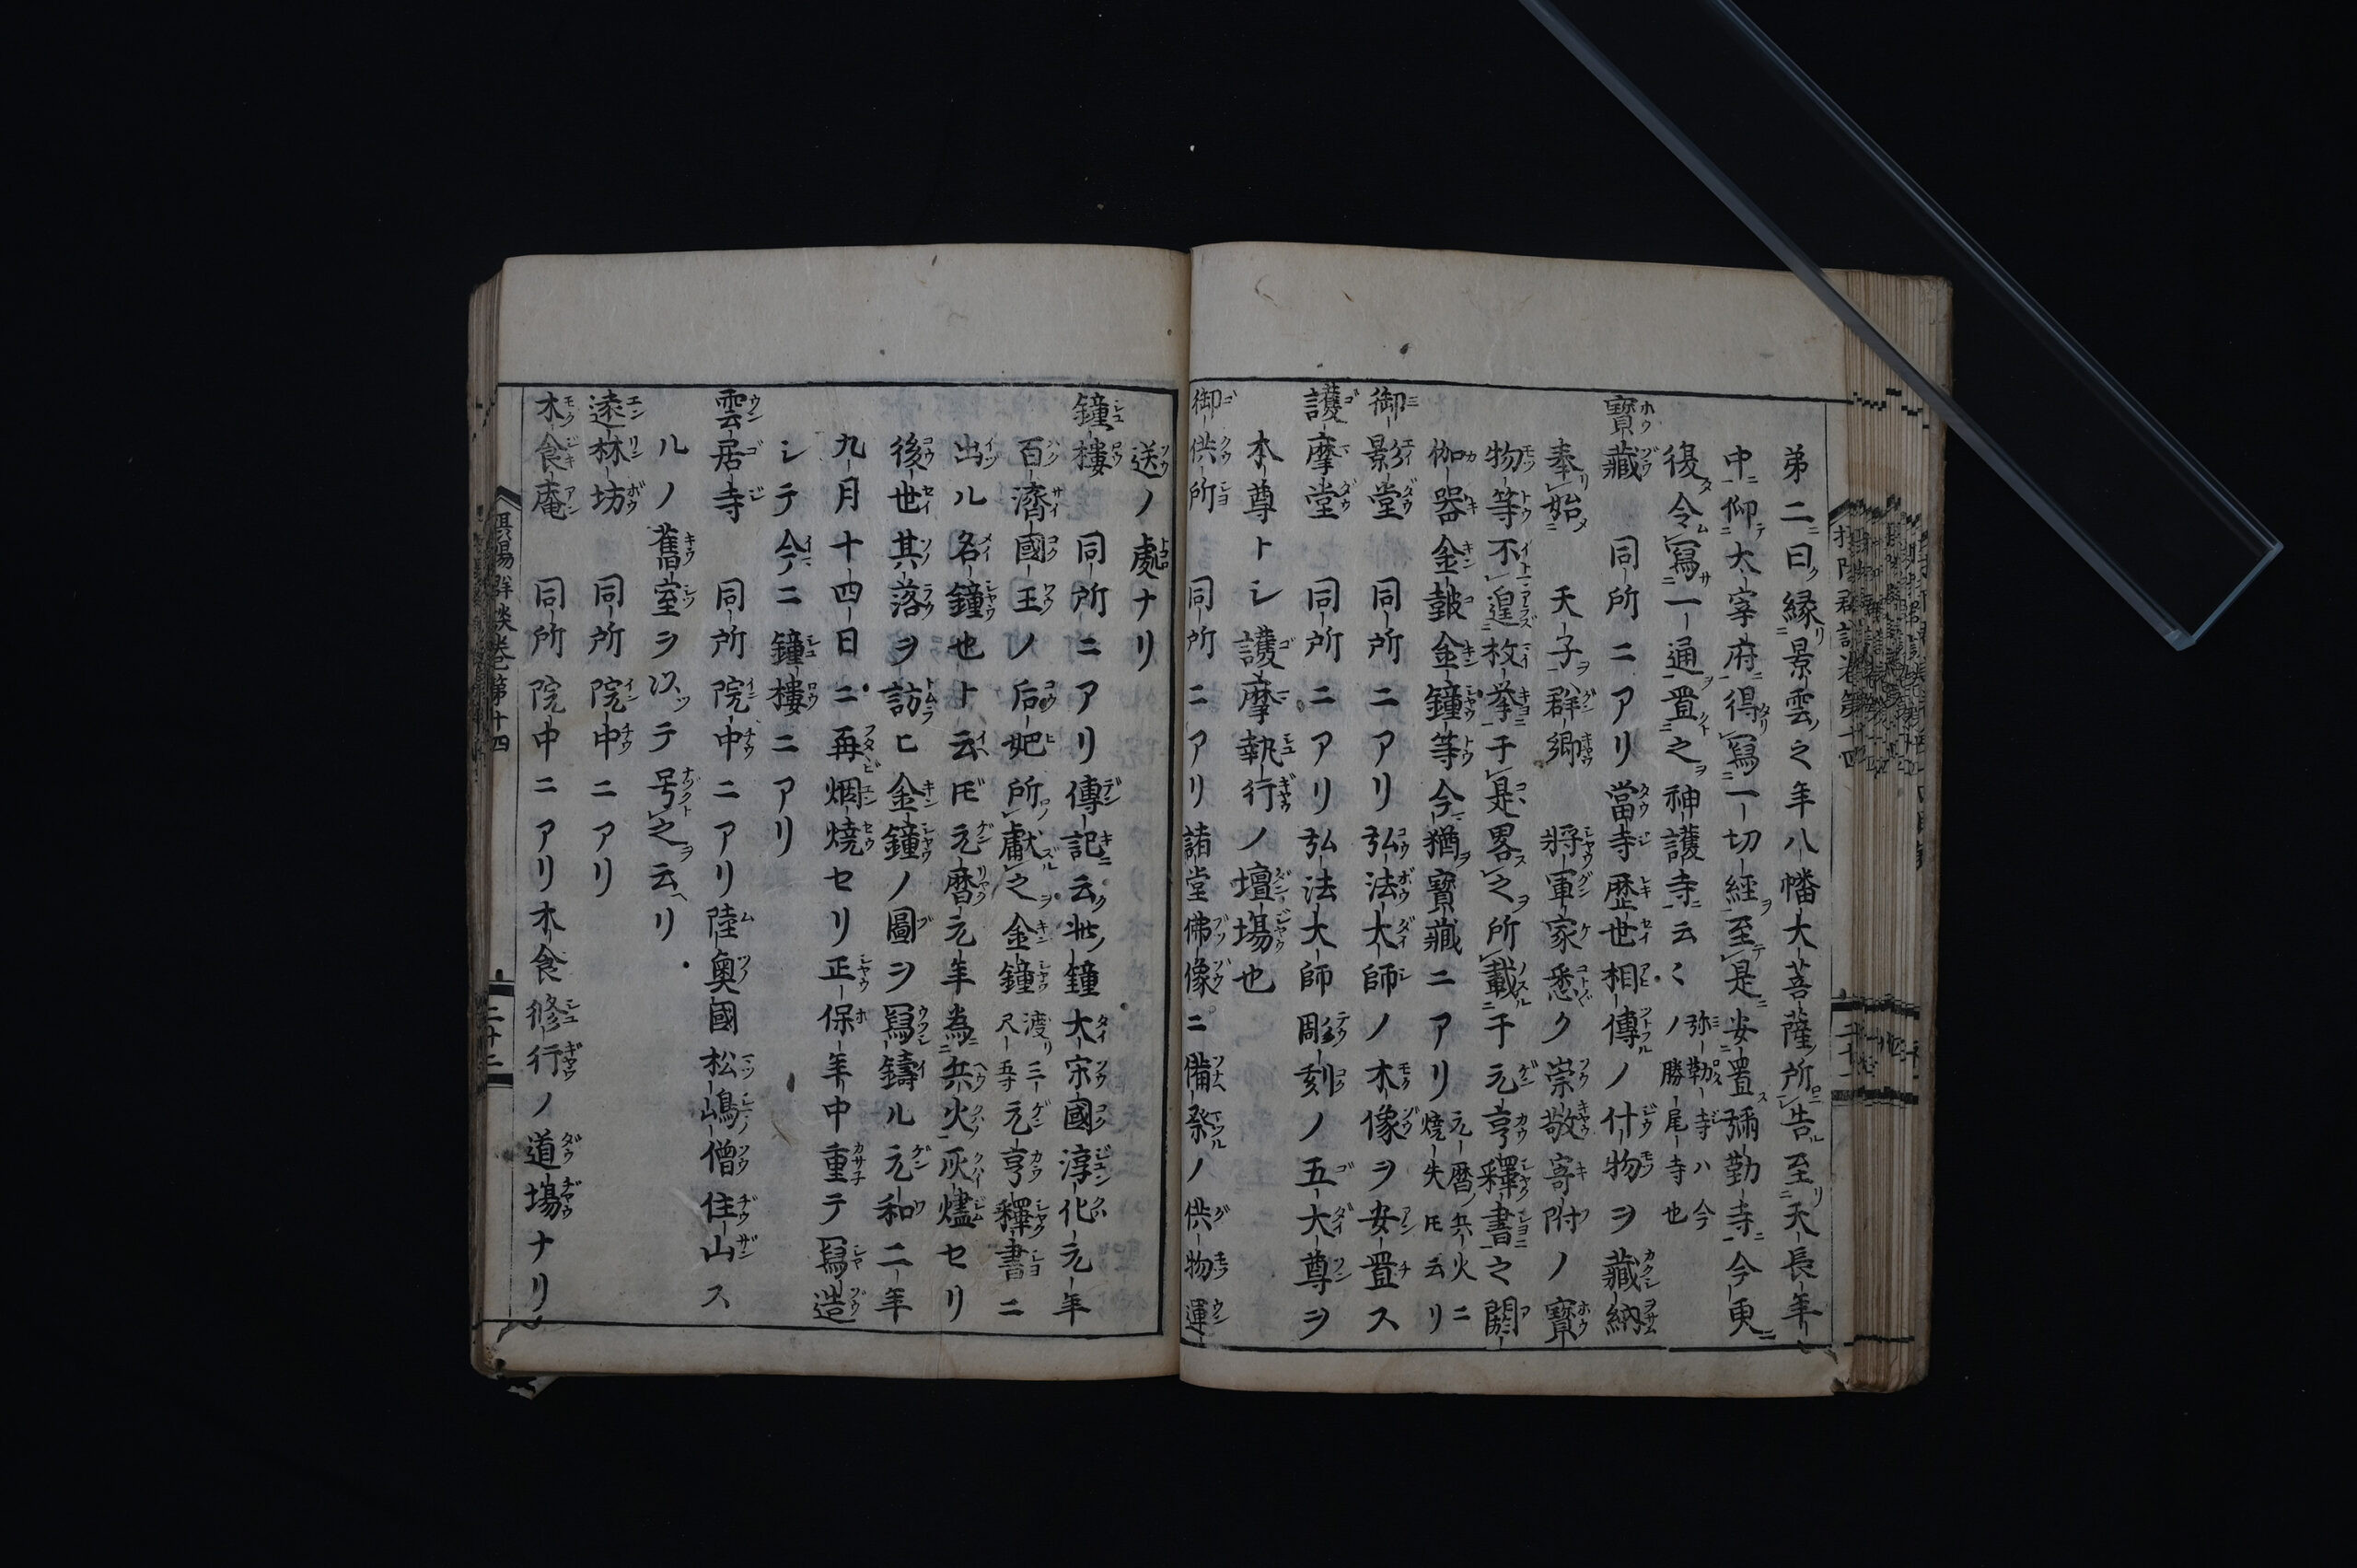 第二曰縁景雲之年八幡大菩薩所告至天長年
中仰大宰府得寫一切經至是安置彌勒寺今更
復令寫一通置之神護寺云〻弥勒寺ハ今ノ勝尾寺也
寶藏 同所ニアリ當寺歴世相傳ノ付物ヲ藏納
奉始 天子群卿 將軍家悉ク崇敬寄附ノ寶
物等不遑枚挙于是畧之所載于元亨釋書之閼
伽器金鼓金鐘等今猶寶藏ニアリ元暦ノ兵火ニ焼失ト云リ
御影堂 同所ニアリ弘法大師ノ木像ヲ安置ス
護摩堂 同所ニアリ弘法大師彫刻ノ五大尊ヲ
本尊トシ護摩執行ノ壇場也
御供所 同所ニアリ諸堂佛像ニ備祭ノ供物運
送ノ處ナリ
鐘樓 同所ニアリ傳記云此鐘大宋國淳化元年
百濟國王ノ后妃所獻之金鐘渡リ三尺五寸元亨釋書ニ
出ル名鐘也ト云ヘ𪜈元暦元年為兵火灰燼セリ
後世其落ヲ訪ヒ金鐘ノ圖ヲ寫鑄ル元和二年
九月十四日ニ再烟焼セリ正保年中重テ寫造
シテ今ニ鐘樓ニアリ
雲居寺 同所院中ニアリ陸奥國松嶋僧住山ス
ルノ舊室ヲ以テ号之云ヘリ
遠林坊 同所院中ニアリ
木食庵 同所院中ニアリ木食修行ノ道場ナリ
摂陽群談巻第十四
二十二